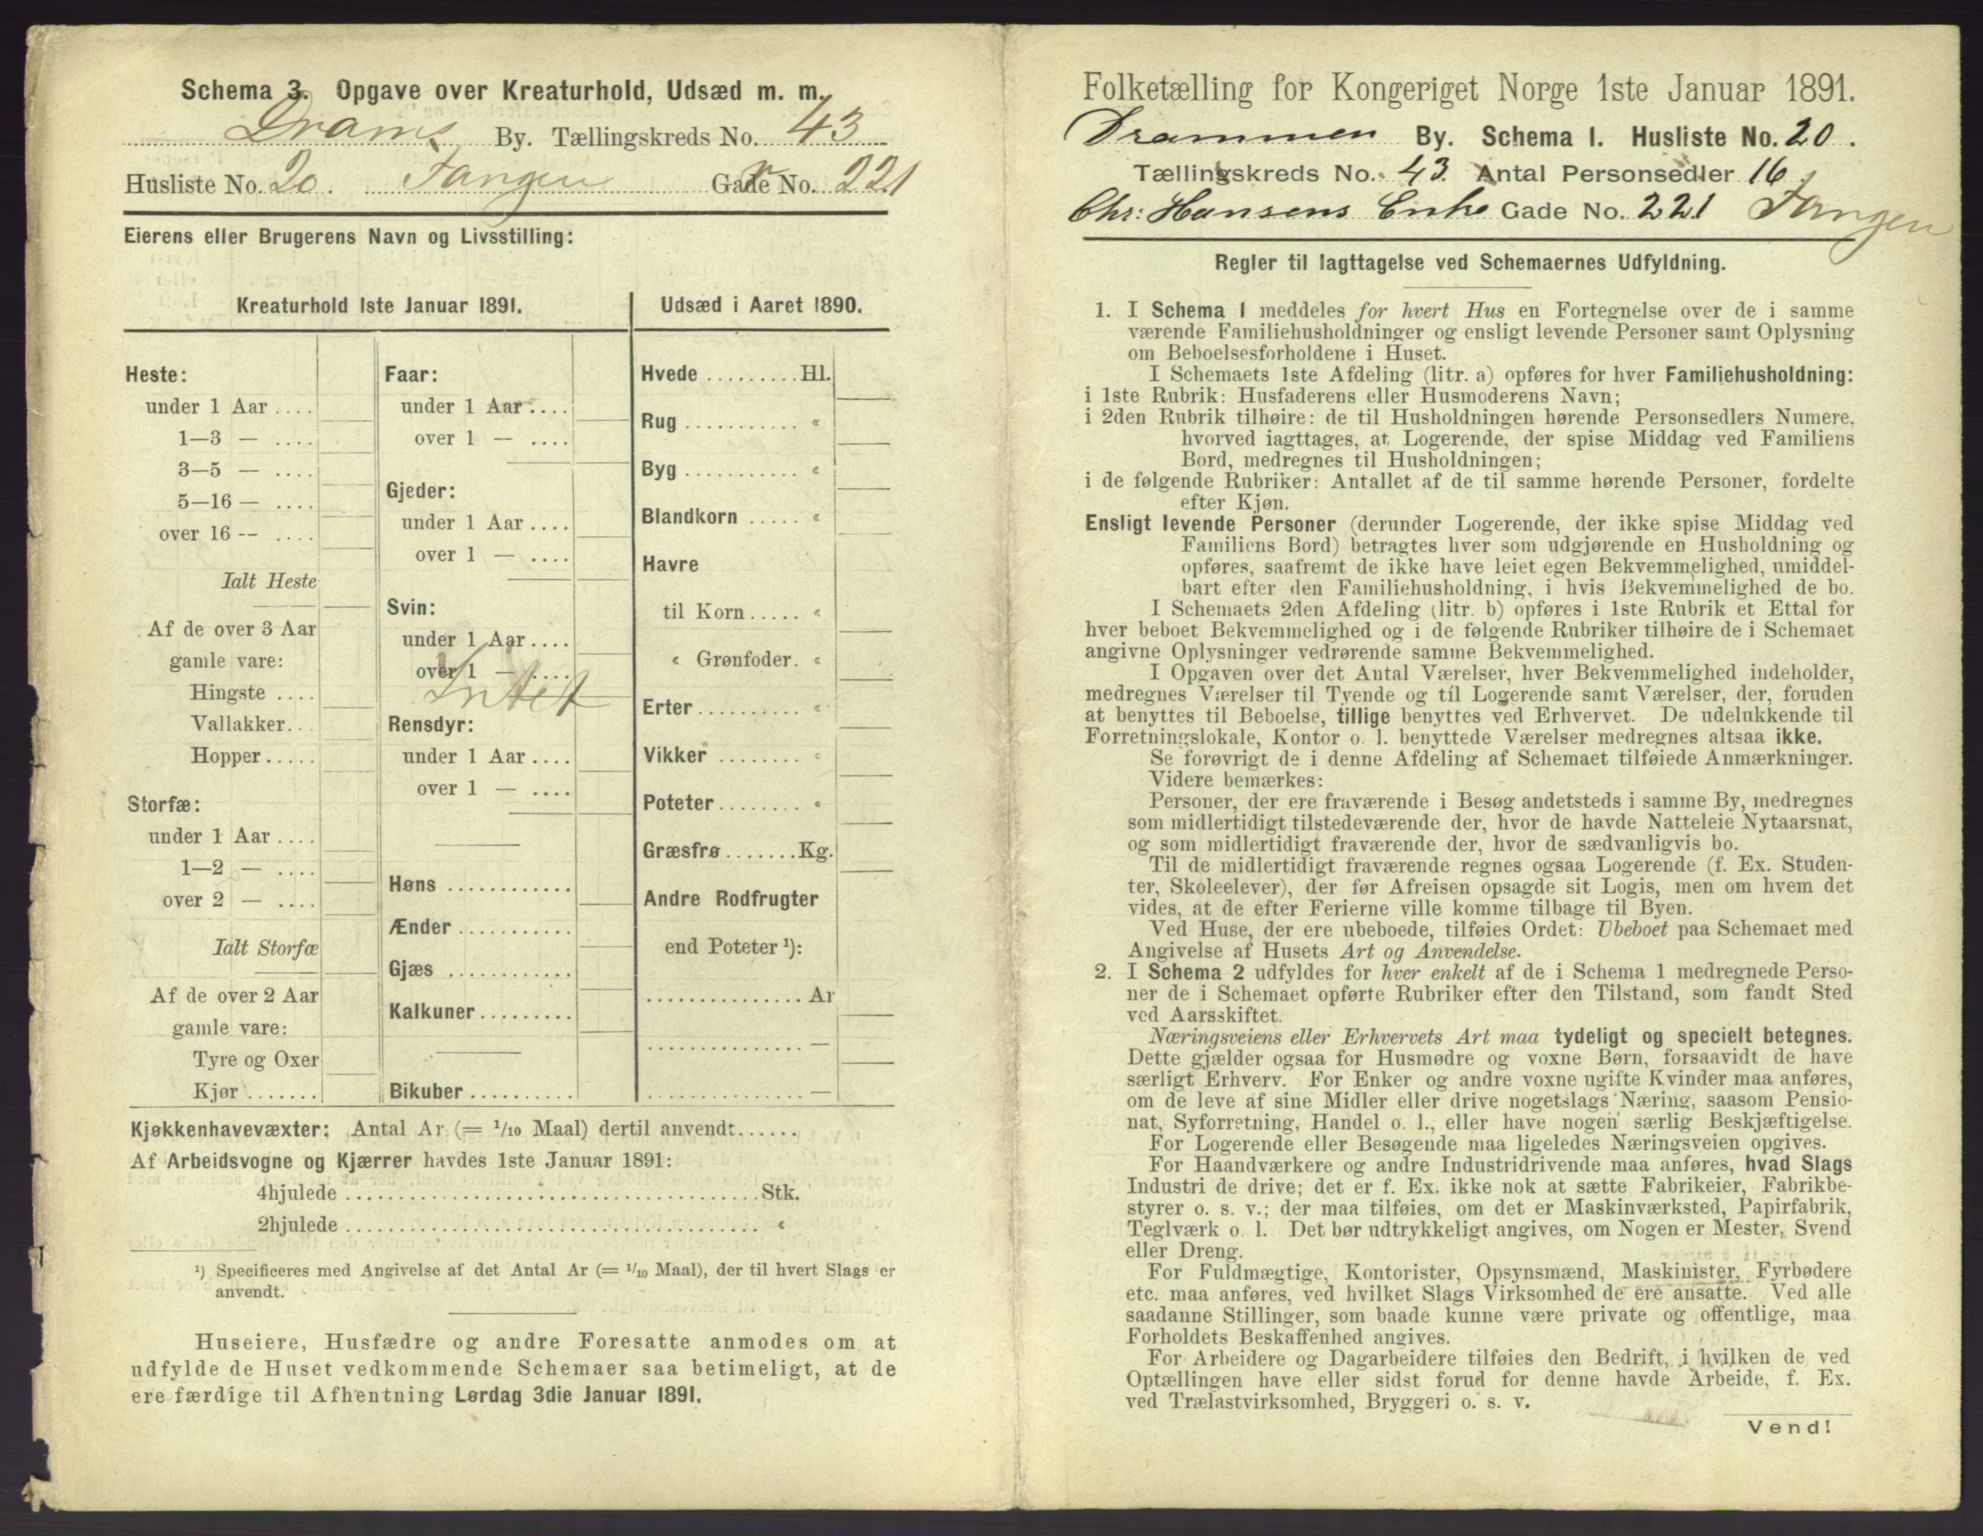 Schema 3. Opgave over Kreaturhold, Udsæd m. m.
Drams By. Tællingskreds No. 43
Husliste No. 20. Tangen Gade No. 221
Eierens eller Brugerens Navn og Livsstilling:
Kreaturhold 1ste Januar 1891.
Heste:
under 1 Aar ....
1—3 — ....
3—5 — ....
5—16 — ....
over 16 -- ....
Ialt Heste
Af de over 3 Aar
gamle vare:
Hingste ....
Vallakker...
Hopper.....
Storfæ:
under 1 Aar ....
1—2 — ....
over 2 — ....
Ialt Storfæ
Af de over 2 Aar
gamle vare:
Tyre og Oxer
Kjør .......
Faar:
under 1 Aar ....
over 1 — ....
Gjeder:
under 1 Aar ....
over 1 — ....
Svin:
under 1 Aar ....
over 1 — ....
Intet
Rensdyr:
under 1 Aar ....
over 1 — ....
Høns ............
Ænder ...........
Gjæs ............
Kalkuner.........
Bikuber ..........
Udsæd i Aaret 1890.
Hvede .........Hl.
Rug ........... «
Byg ........... «
Blandkorn ..... «
Havre
til Korn ..... «
« Grønfoder. «
Erter.......... «
Vikker ........ «
Poteter........ «
Græsfrø.......Kg.
Andre Rodfrugter
end Poteter ¹):
............... Ar
............... —
............... —
Kjøkkenhavevæxter: Antal Ar (= 1/10 Maal) dertil anvendt......
Af Arbeidsvogne og Kjærrer havdes 1ste Januar 1891:
4hjulede ......................................Stk.
2hjulede ...................................... «
¹) Specificeres med Angivelse af det Antal Ar (= 1/10 Maal), der til hvert Slags er
anvendt.
Huseiere, Husfædre og andre Foresatte anmodes om at
udfylde de Huset vedkommende Schemaer saa betimeligt, at de
ere færdige til Afhentning Lørdag 3die Januar 1891.
Folketælling for Kongeriget Norge 1ste Januar 1891.
Drammen By. Schema 1. Husliste No. 20.
Tællingskreds No. 43. Antal Personsedler 16.
Chr: Hansens Enke Gade No. 221 Tangen
Regler til Iagttagelse ved Schemaernes Udfyldning.
1. I Schema 1 meddeles for hvert Hus en Fortegnelse over de i samme
værende Familiehusholdninger og ensligt levende Personer samt Oplysning
om Beboelsesforholdene i Huset.
I Schemaets 1ste Afdeling (litr. a) opføres for hver Familiehusholdning:
i 1ste Rubrik: Husfaderens eller Husmoderens Navn;
i 2den Rubrik tilhøire: de til Husholdningen hørende Personsedlers Numere,
hvorved iagttages, at Logerende, der spise Middag ved Familiens
Bord, medregnes til Husholdningen;
i de følgende Rubriker: Antallet af de til samme hørende Personer, fordelte
efter Kjøn.
Ensligt levende Personer (derunder Logerende, der ikke spise Middag ved
Familiens Bord) betragtes hver som udgjørende en Husholdning og
opføres, saafremt de ikke have leiet egen Bekvemmelighed, umiddel-
bart efter den Familiehusholdning, i hvis Bekvemmelighed de bo.
I Schemaets 2den Afdeling (litr. b) opføres i 1ste Rubrik et Ettal for
hver beboet Bekvemmelighed og i de følgende Rubriker tilhøire de i Schemaet
angivne Oplysninger vedrørende samme Bekvemmelighed.
I Opgaven over det Antal Værelser, hver Bekvemmelighed indeholder,
medregnes Værelser til Tyende og til Logerende samt Værelser, der, foruden
at benyttes til Beboelse, tillige benyttes ved Erhvervet. De udelukkende til
Forretningslokale, Kontor o. l. benyttede Værelser medregnes altsaa ikke.
Se forøvrigt de i denne Afdeling af Schemaet tilføiede Anmærkninger.
Videre bemærkes:
Personer, der ere fraværende i Besøg andetsteds i samme By, medregnes
som midlertidigt tilstedeværende der, hvor de havde Natteleie Nytaarsnat,
og som midlertidigt fraværende der, hvor de sædvanligvis bo.
Til de midlertidigt fraværende regnes ogsaa Logerende (f. Ex. Studen-
ter, Skoleelever), der før Afreisen opsagde sit Logis, men om hvem det
vides, at de efter Ferierne ville komme tilbage til Byen.
Ved Huse, der ere ubeboede, tilføies Ordet: Ubeboet paa Schemaet med
Angivelse af Husets Art og Anvendelse.
2. I Schema 2 udfyldes for hver enkelt af de i Schema 1 medregnede Perso-
ner de i Schemaet opførte Rubriker efter den Tilstand, som fandt Sted
ved Aarsskiftet.
Næringsveiens eller Erhvervets Art maa tydeligt og specielt betegnes.
Dette gjælder ogsaa for Husmødre og voxne Børn, forsaavidt de have
særligt Erhverv. For Enker og andre voxne ugifte Kvinder maa anføres,
om de leve af sine Midler eller drive nogetslags Næring, saasom Pensio-
nat, Syforretning, Handel o. l., eller have nogen særlig Beskjæftigelse.
For Logerende eller Besøgende maa ligeledes Næringsveien opgives.
For Haandværkere og andre Industridrivende maa anføres, hvad Slags
Industri de drive; det er f. Ex. ikke nok at sætte Fabrikeier, Fabrikbe-
styrer o. s. v.; der maa tilføies, om det er Maskinværksted, Papirfabrik,
Teglværk o. l. Det bør udtrykkeligt angives, om Nogen er Mester, Svend
eller Dreng.
For Fuldmægtige, Kontorister, Opsynsmænd, Maskinister, Fyrbødere
etc. maa anføres, ved hvilket Slags Virksomhed de ere ansatte. Ved alle
saadanne Stillinger, som baade kunne være private og offentlige, maa
Forholdets Beskaffenhed angives.
For Arbeidere og Dagarbeidere tilføies den Bedrift, i hvilken de ved
Optællingen have eller sidst forud for denne havde Arbeide, f. Ex.
ved Trælastvirksomhed, Bryggeri o. s. v.
Vend!